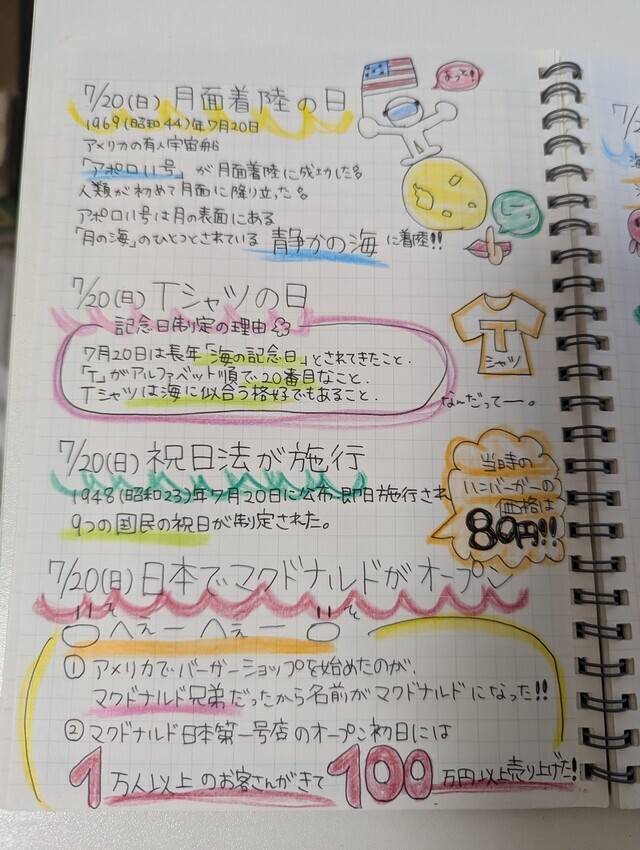 7/20(日)月面着陸の日
1969(昭和44)年7月20日
アメリカの有人宇宙船
「アポロ11号」が月面着陸に成功した
人類が初めて月面に降り立った
アポロ11号は月の表面にある
「月の海」のひとつとされている 静かの海 に着陸!!
7/20(日)Tシャツの日
記念日制定の理由
7月20日は長年「海の記念日」とされてきたこと.
「T」がアルファベット順で20番目なこと.
Tシャツは海に似合う格好でもあること.
T
シャツ
なんだってー。
7/20(日)祝日法が施行
1948(昭和23)年7月20日に公布・即日施行され
9つの国民の祝日が制定された。
当時の
ハンバーガーの
価格は
80円!!
7/20(日)日本でマクドナルドがオープン
へぇー へぇー
①アメリカでバーガーショップを始めたのが、
マクドナルド兄弟だったから名前がマクドナルドになった!!
②マクドナルド日本第一号店のオープン初日には
1万人以上のお客さんがきて100万円以上売り上げた!